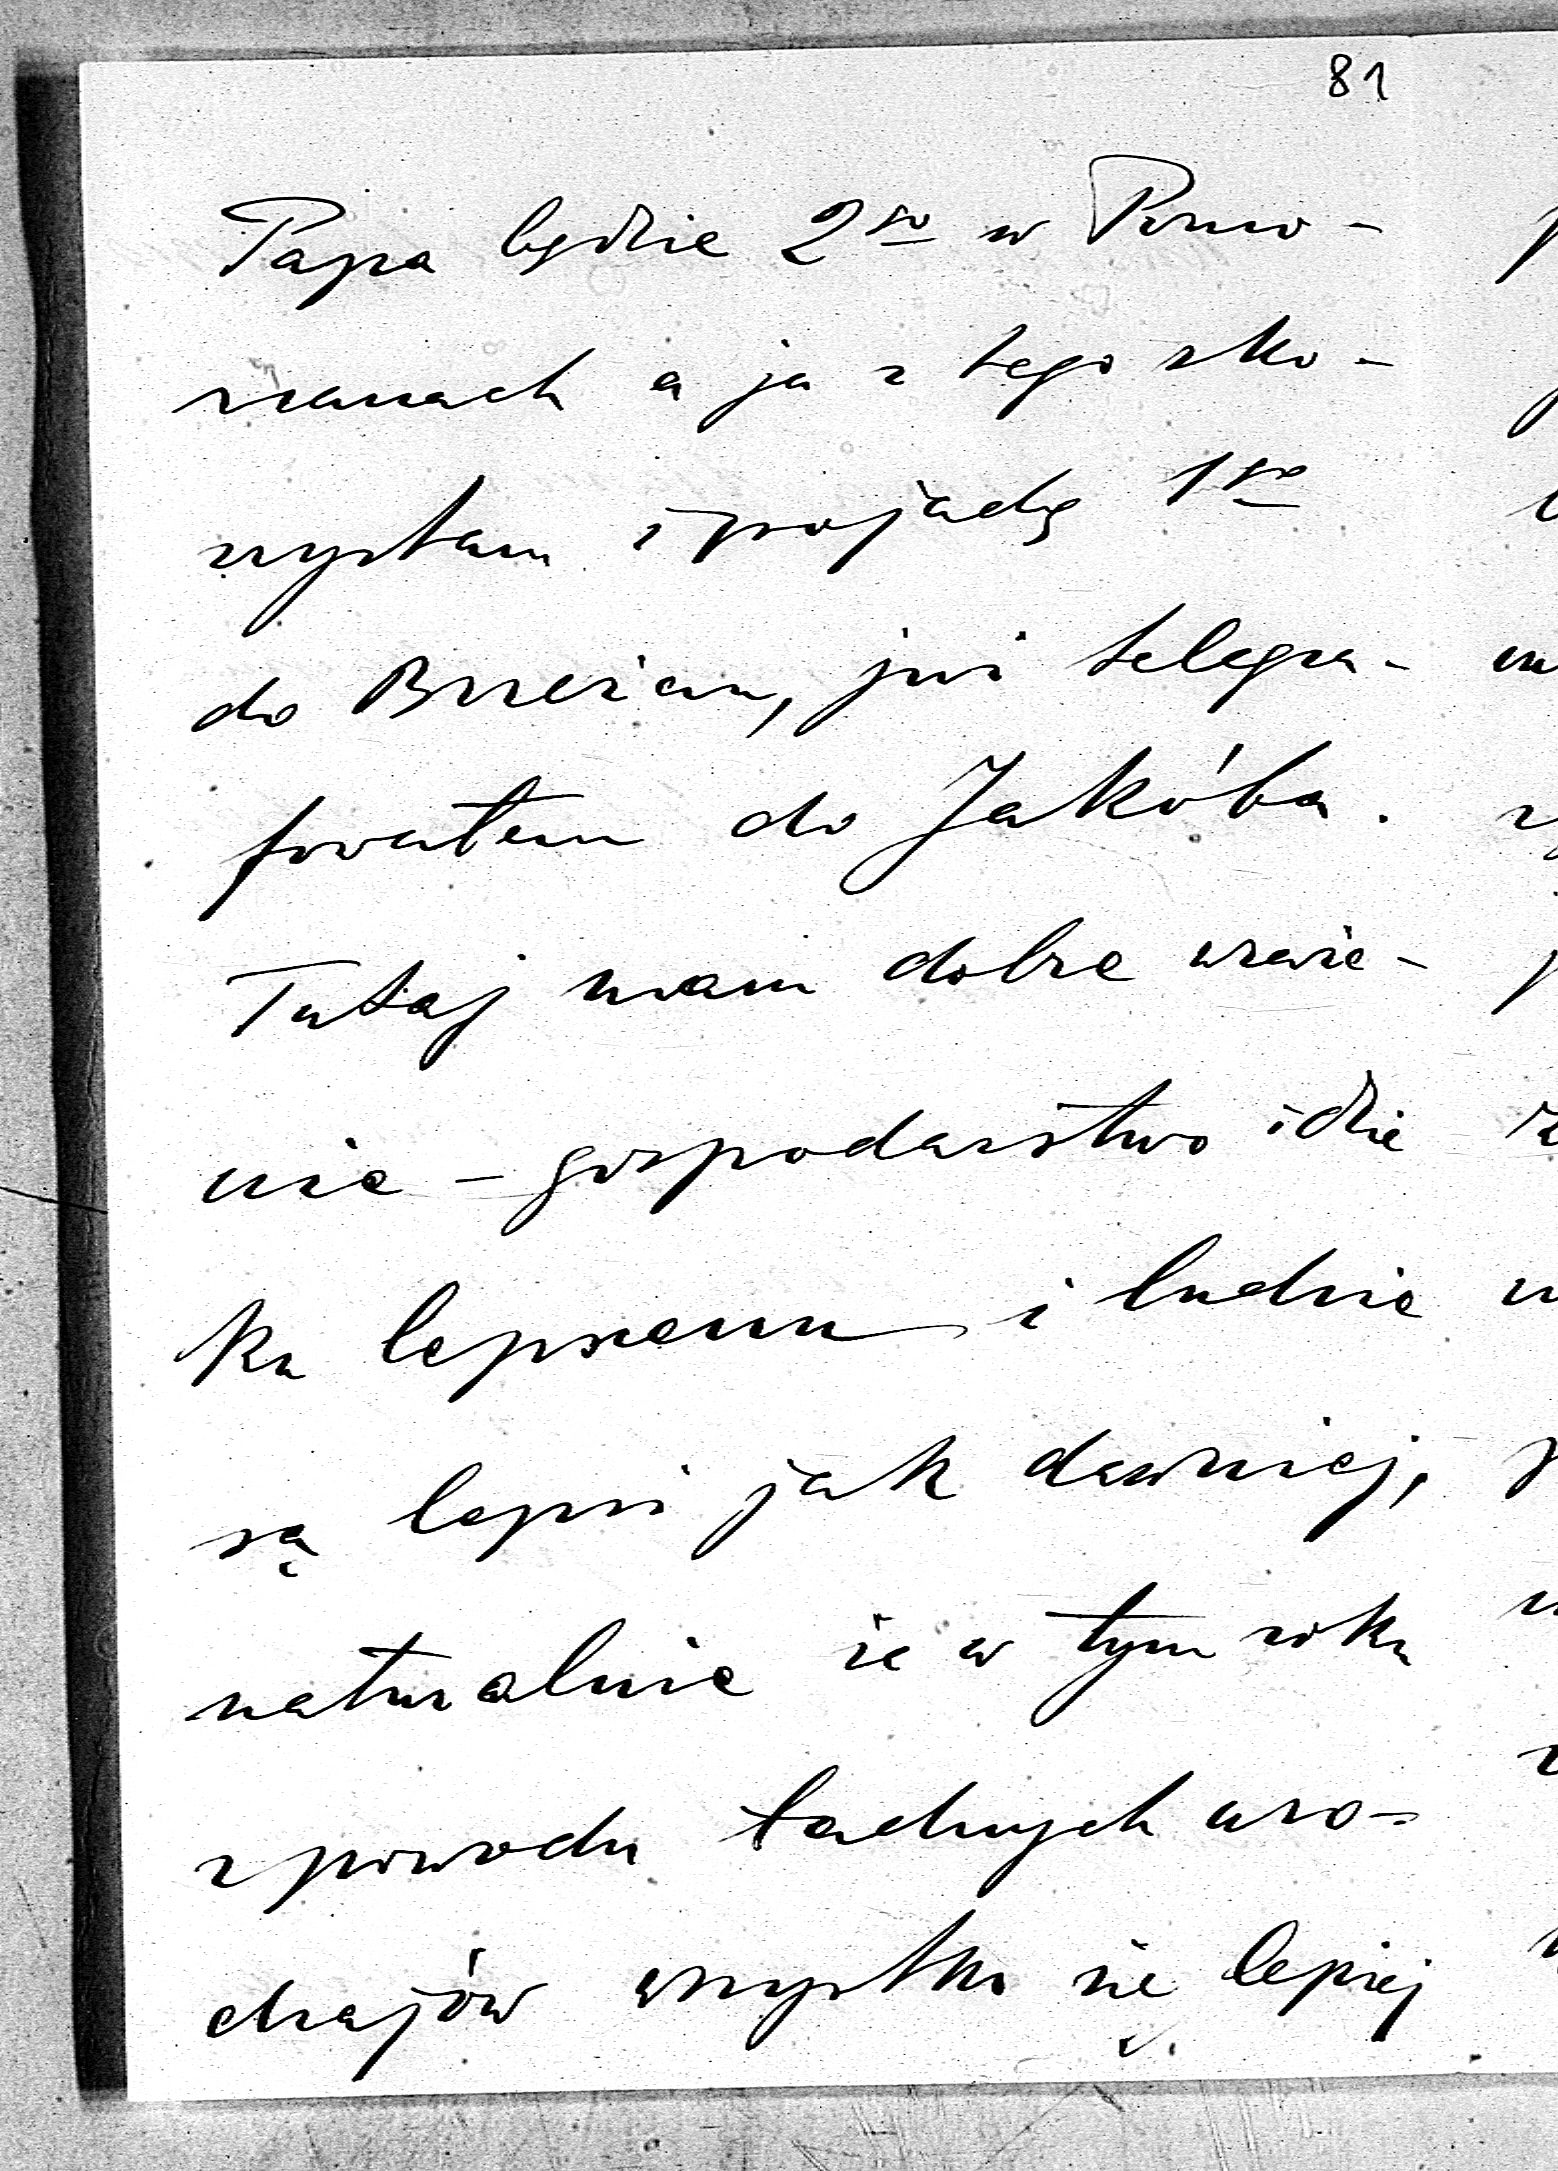 81
Papa będzie 2go w Pomo-
rzanach a ja z tego sko-
rzystam i pojadę 1go
do Brzeżan, już telegra-
fowałem do Jakóba.
Tutaj mam dobre wraże-
nie – gospodarstwo idzie
ku lepszemu i ludzie
są lepsi jak dawniej,
naturalnie że w tym roku
z powodu ładnych uro-
dzajów wszystko się lepiej